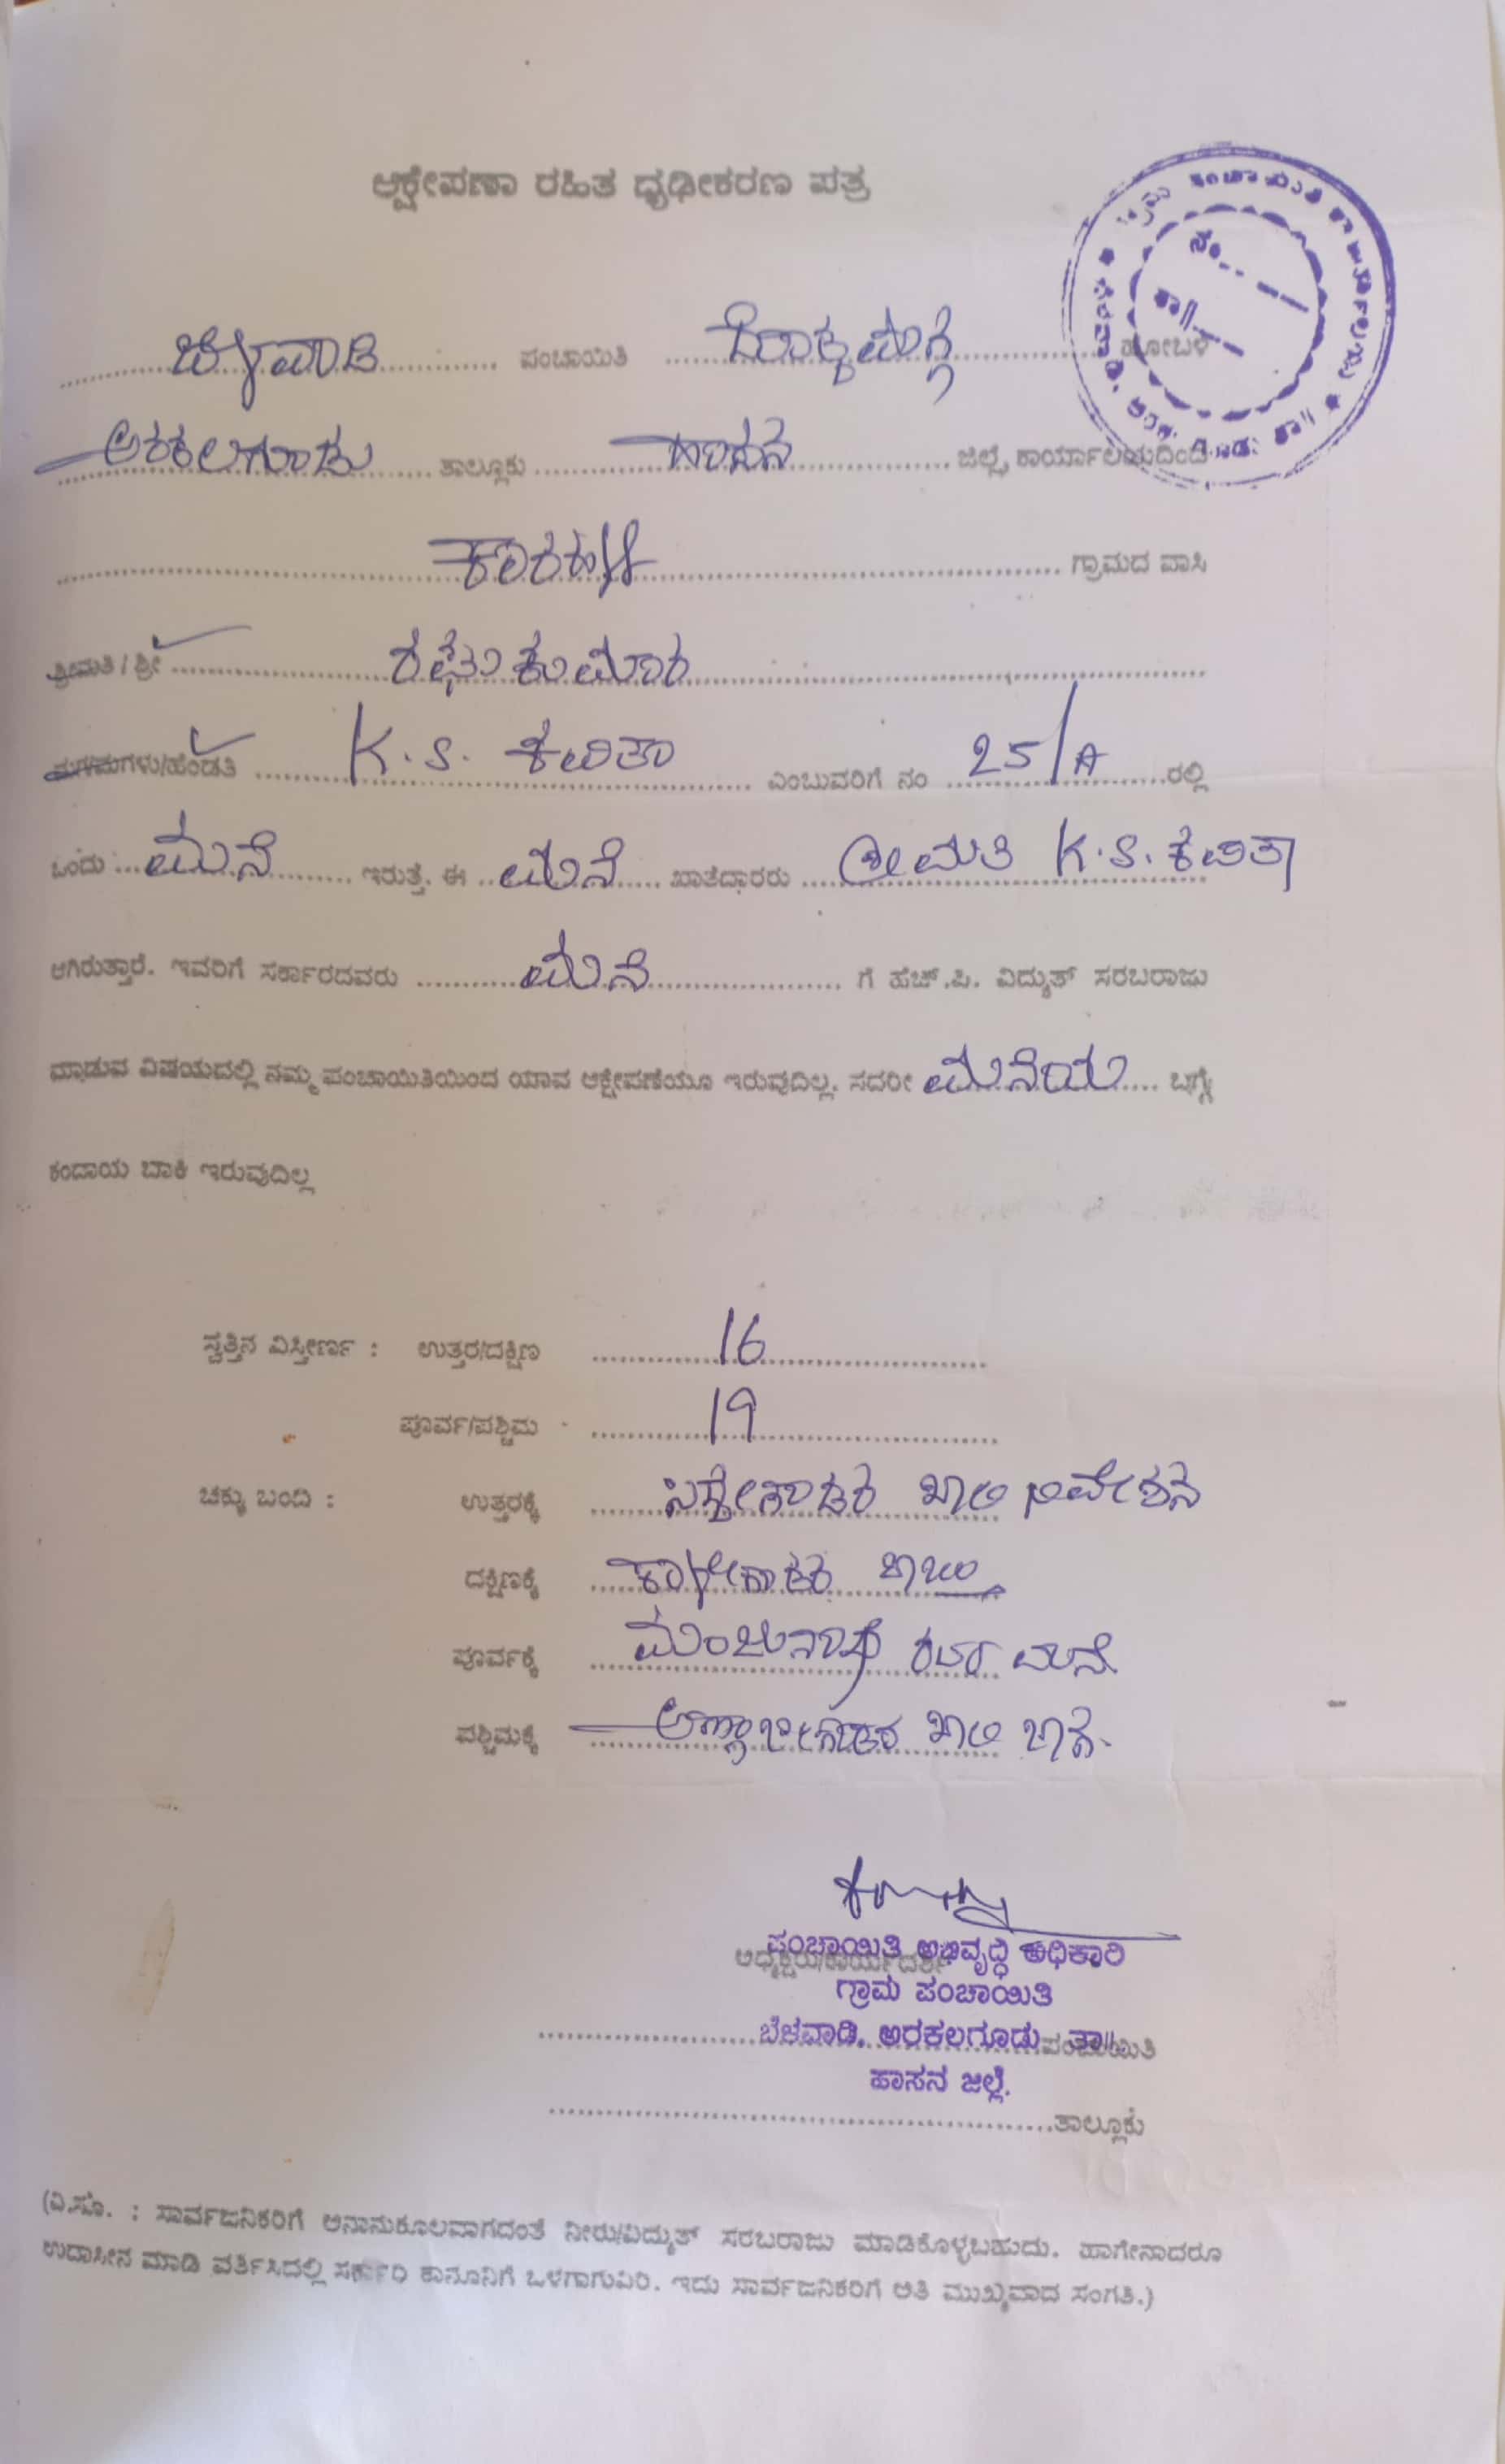 ಆಕ್ಷೇಪಣಾ ರಹಿತ ಧೃಢೀಕರಣ ಪತ್ರ
ಬೆಳವಾಡಿ ಪಂಚಾಯಿತಿ ದೊಡ್ಡಮಗ್ಗೆ ಹೋಬಳಿ
ಅರಕಲಗೂಡು ತಾಲ್ಲೂಕು ಹಾಸನ ಜಿಲ್ಲೆ, ಕಾರ್ಯಾಲಯದಿಂದ
ಕಾರಹಳ್ಳಿ ಗ್ರಾಮದ ವಾಸಿ
ಶ್ರೀಮತಿ / ಶ್ರೀ ರಘುಕುಮಾರ
ಮಗ/ಮಗಳು/ಹೆಂಡತಿ K.S. ಕವಿತಾ ಎಂಬುವರಿಗೆ ನಂ 25/A ರಲ್ಲಿ
ಒಂದು ಮನೆ ಇರುತ್ತೆ. ಈ ಮನೆ ಖಾತೆದಾರರು ಶ್ರೀಮತಿ K.S. ಕವಿತಾ
ಆಗಿರುತ್ತಾರೆ. ಇವರಿಗೆ ಸರ್ಕಾರದವರು ಮನೆ ಗೆ ಹೆಚ್.ಪಿ. ವಿದ್ಯುತ್ ಸರಬರಾಜು
ಮಾಡುವ ವಿಷಯದಲ್ಲಿ ನಮ್ಮ ಪಂಚಾಯಿತಿಯಿಂದ ಯಾವ ಆಕ್ಷೇಪಣೆಯೂ ಇರುವುದಿಲ್ಲ. ಸದರೀ ಮನೆಯ ಬಗ್ಗೆ
ಕಂದಾಯ ಬಾಕಿ ಇರುವುದಿಲ್ಲ
ಸ್ವತ್ತಿನ ವಿಸ್ತೀರ್ಣ : ಉತ್ತರ/ದಕ್ಷಿಣ 16
ಪೂರ್ವ/ಪಶ್ಚಿಮ 19
ಚಕ್ಕು ಬಂದಿ : ಉತ್ತರಕ್ಕೆ ಖಾಲಿ ನಿವೇಶನ
ದಕ್ಷಿಣಕ್ಕೆ ಕಾಳೇಗೌಡರ
ಪೂರ್ವಕ್ಕೆ ಮಂಜುನಾಥ ರವರ ಮನೆ
ಪಶ್ಚಿಮಕ್ಕೆ ಖಾಲಿ ಜಾಗ.
ಪಂಚಾಯಿತಿ ಅಭಿವೃದ್ಧಿ ಅಧಿಕಾರಿ
ಅಧ್ಯಕ್ಷರು/ಕಾರ್ಯದರ್ಶಿ
ಗ್ರಾಮ ಪಂಚಾಯಿತಿ
ಬೆಳವಾಡಿ, ಅರಕಲಗೂಡು ತಾ||
ಪಂಚಾಯಿತಿ
ಹಾಸನ ಜಿಲ್ಲೆ.
ತಾಲ್ಲೂಕು
(ವಿ.ಸೂ. : ಸಾರ್ವಜನಿಕರಿಗೆ ಅನಾನುಕೂಲವಾಗದಂತೆ ನೀರು/ವಿದ್ಯುತ್ ಸರಬರಾಜು ಮಾಡಿಕೊಳ್ಳಬಹುದು. ಹಾಗೇನಾದರೂ
ಉದಾಸೀನ ಮಾಡಿ ವರ್ತಿಸಿದಲ್ಲಿ ಸರ್ಕಾರಿ ಕಾನೂನಿಗೆ ಒಳಗಾಗುವಿರಿ. ಇದು ಸಾರ್ವಜನಿಕರಿಗೆ ಅತಿ ಮುಖ್ಯವಾದ ಸಂಗತಿ.)